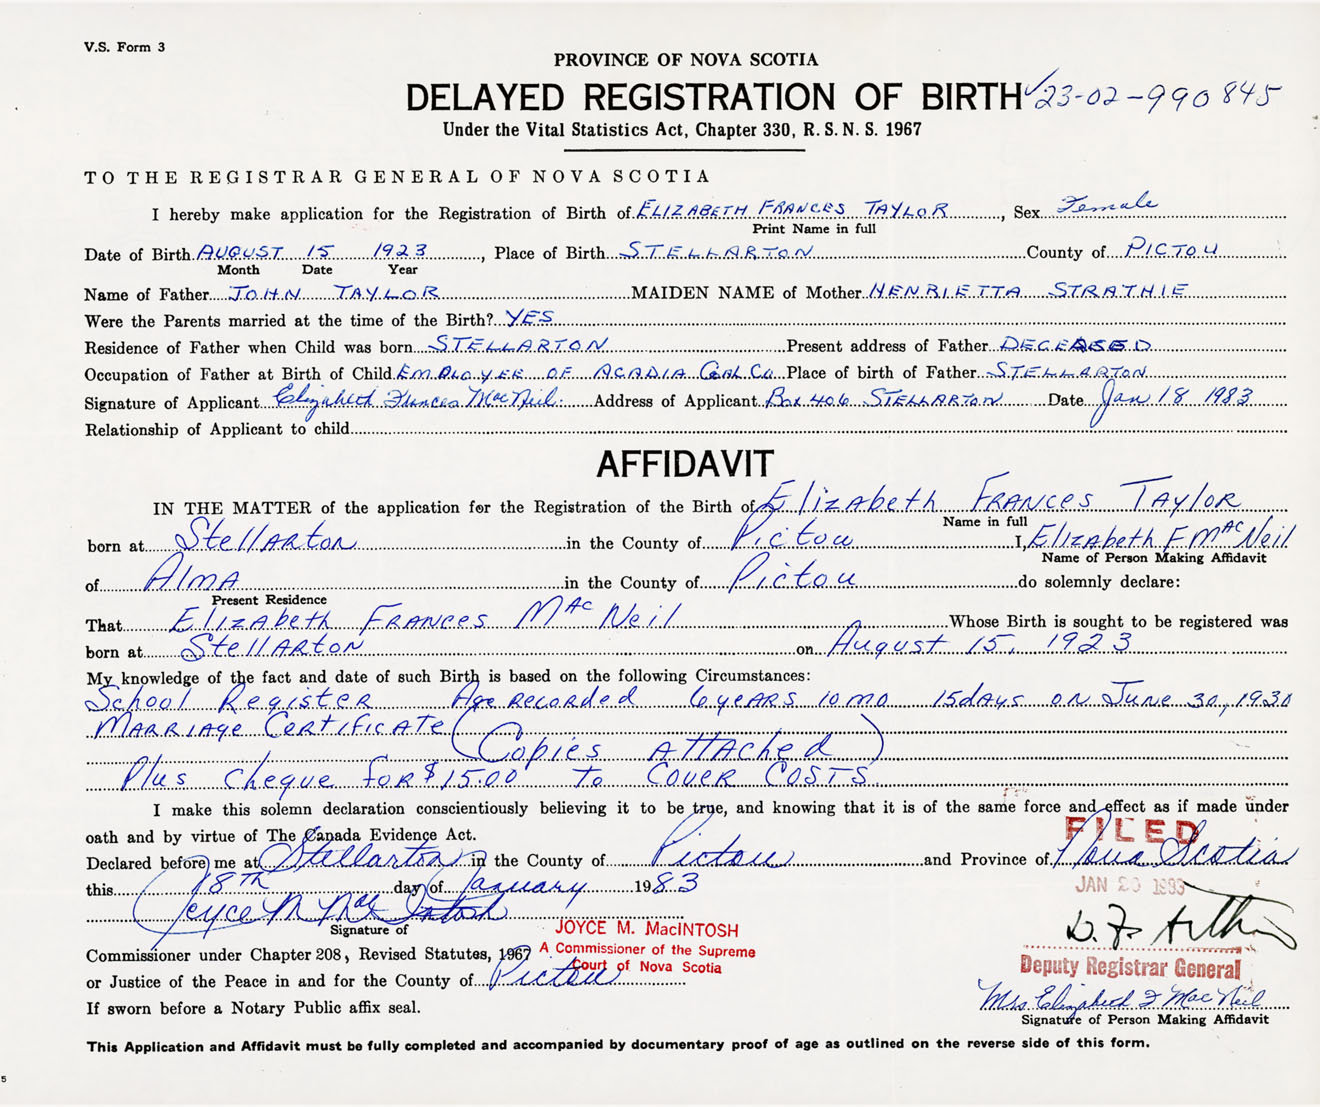 V.S. Form 3
PROVINCE OF NOVA SCOTIA
DELAYED REGISTRATION OF BIRTH 23-02-990845
Under the Vital Statistics Act, Chapter 330, R. S. N. S. 1967
TO THE REGISTRAR GENERAL OF NOVA SCOTIA
I hereby make application for the Registration of Birth of ELIZABETH FRANCES TAYLOR, Sex Female
Print Name in full
Date of Birth AUGUST 15 1923, Place of Birth STELLARTON County of PICTOU
Month Date Year
Name of Father JOHN TAYLOR MAIDEN NAME of Mother HENRIETTA STRATHIE
Were the Parents married at the time of the Birth? YES
Residence of Father when Child was born STELLARTON Present address of Father DECEASED
Occupation of Father at Birth of Child EMPLOYEE OF ACADIA COAL CO Place of birth of Father STELLARTON
Signature of Applicant Elizabeth Frances MacNeil. Address of Applicant Box 406 STELLARTON Date Jan 18 1983
Relationship of Applicant to child
AFFIDAVIT
IN THE MATTER of the application for the Registration of the Birth of Elizabeth FRANCES TAYLOR
Name in full
born at Stellarton in the County of Pictou I, Elizabeth F. MacNeil
Name of Person Making Affidavit
of Alma in the County of Pictou do solemnly declare:
Present Residence
That Elizabeth Frances MacNeil Whose Birth is sought to be registered was
born at Stellarton on August 15, 1923
My knowledge of the fact and date of such Birth is based on the following Circumstances:
School Register Age recorded 6 years 10 mo 15 days on June 30, 1930
Marriage Certificate (Copies attached)
Plus cheque for $15.00 to cover costs.
I make this solemn declaration conscientiously believing it to be true, and knowing that it is of the same force and effect as if made under
oath and by virtue of The Canada Evidence Act.
FILED
Declared before me at Stellarton in the County of Pictou and Province of Nova Scotia
this 18th day of January 1983
JAN 20 1983
Joyce M MacIntosh
Signature of
JOYCE M. MacINTOSH
A Commissioner of the Supreme
Court of Nova Scotia
Commissioner under Chapter 208, Revised Statutes, 1967
or Justice of the Peace in and for the County of Pictou
Deputy Registrar General
If sworn before a Notary Public affix seal.
Mrs Elizabeth F MacNeil
Signature of Person Making Affidavit
This Application and Affidavit must be fully completed and accompanied by documentary proof of age as outlined on the reverse side of this form.
5